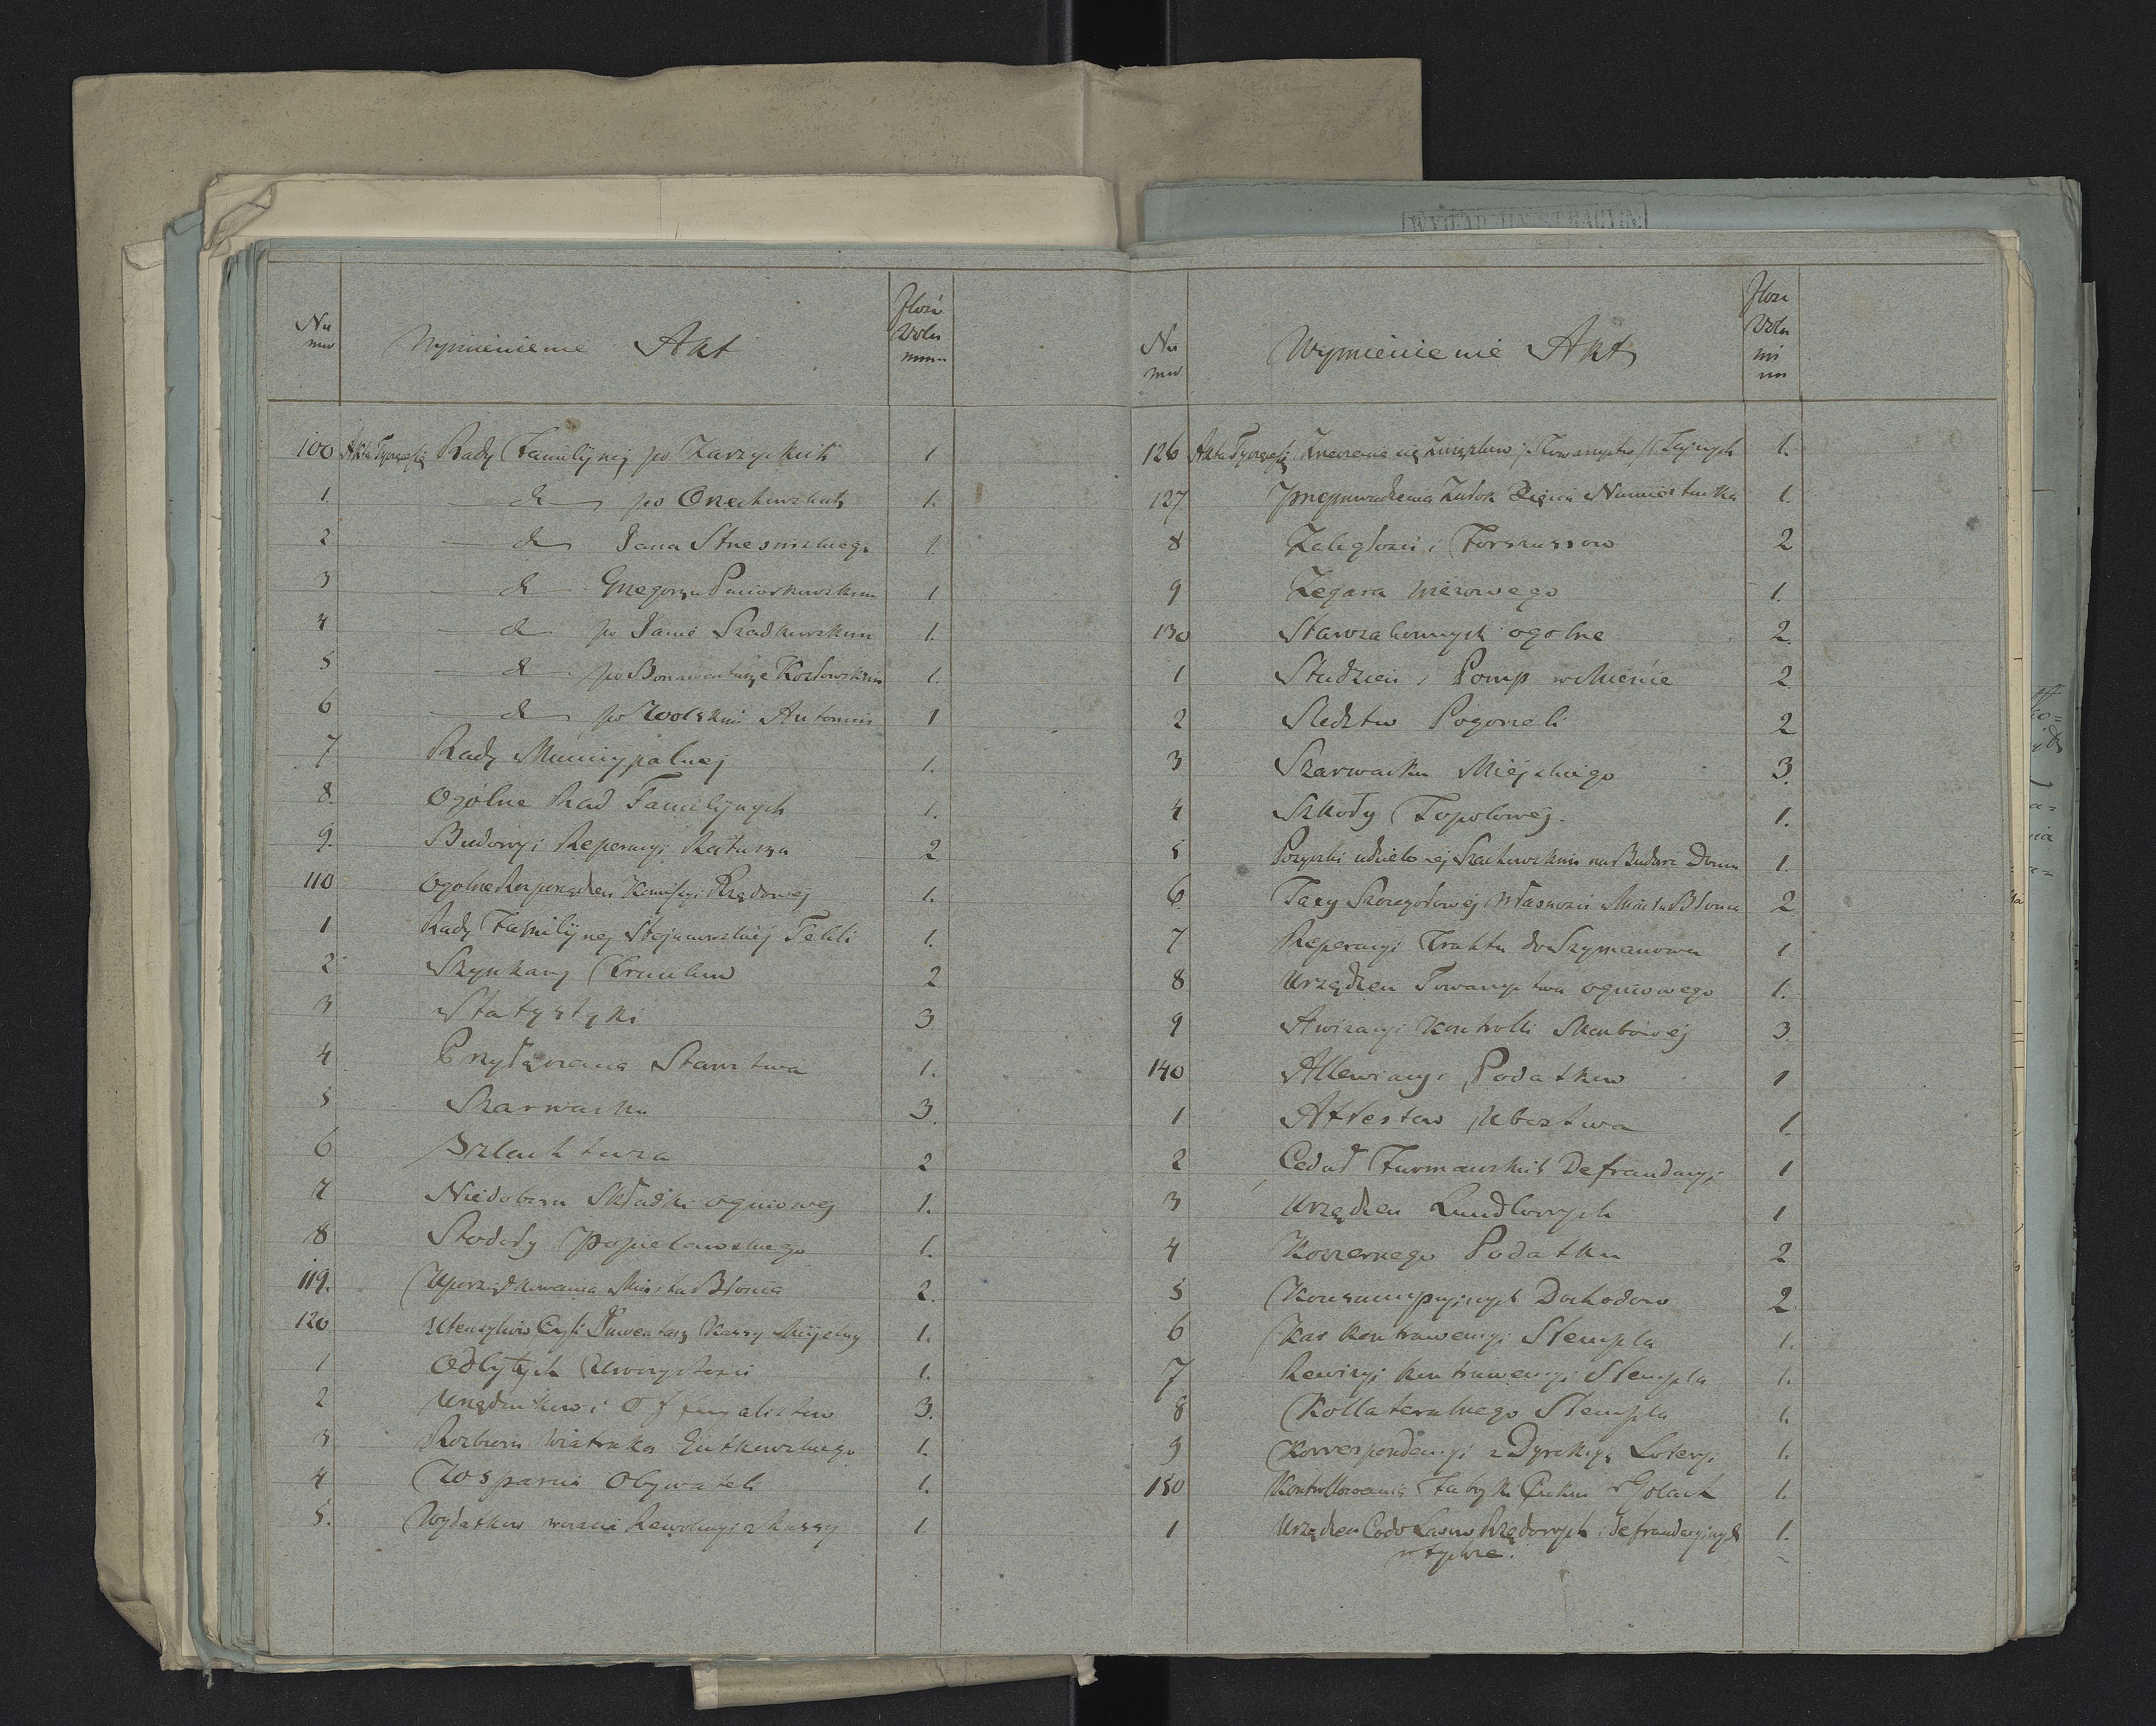 Nu Wymienienie Akt Ilość
mer Volu
minu
100 Akta Tyczące się Rady Familijnej po Zarzyckich 1
1. do po Orzechowskich 1.
2 do Jana 1.
3 do Grzegorzu 1.
4 do po Janie Szadkowskim 1.
5 do po Bonawenturze Kozłowskim 1.
6 do po Wolskim Antonim 1
7 Rady Municypalnej 1.
8. Ogólne Rad Familijnych 1.
9. Budowy i Reperacyi Ratusza 2
110 Ogólne Rozporządzeń Komissyi Rządowej 1.
1 Rady Familijnej Stojanowskiej Tekli 1.
2 Szynkarzy Trunków 2
3 Statystyki 3
4 Przyłączenia Starostwa 1.
5 Szarwarku 3.
6 Szlachtuza 2
7 Niedoboru Składki ogniowej 1.
8 Stodoły Popielawskiego 1.
119. Uporządkowania Miasta Błonia 2.
120 Utensyliów Czyli Inwentarz Kassy Miejskiej 1.
1 Odbytych Uroczystości 1.
2 Urzędników i Officyalistów 3.
3 Rozbioru Wiatraka Gutkowskiego 1.
4 Wsparcia Obywateli 1.
5. Wydatków w czasie Rewolucyi z Kassy 1
Nu Wymienienie Akt Ilość
mer Volu
mi
nu
126 Akta Tyczące się Znoszenia się Związków i Towarzystw Tajnych 1.
127. Zwłok Xięcia Namiestnika 1.
8 Zaległości i Forszussów 2
9 Zegara wieżowego 1.
130 Starozakonnych ogólne 2.
1 Studzien i Pomp w Mieście 2
2 Śledztw Pogorzeli 2
3 Szarwarku Miejskiego 3.
4 Szkoły Topolowej. 1.
5 Pożyczki udzielonej Szachowskim na Budowę Domu 1.
6 Taxy Szczegółowej Własności Miasta Błonia 2
7 Reperacyi Traktu do Szymanowa 1
8 Urządzeń Towarzystwa ogniowego 1.
9 Awizacyi Kontrolli Skarbowej 3
140 Allewiacyi Podatków 1
1 Attestów Ubóstwa 1.
2 Ceduł Furmańskich Defraudacyi 1
3 Urządzeń Handlowych 1
4 Koszernego Podatku 2
5 Konsumpcyjnych Dochodów 2
6 Kar Kontrawencyi Stempla 1.
7 Rewizyi kontrawencyi Stempla 1.
8 Kollateralnego Stempla 1.
9 Korrespondencyi z Dyrekcyą Loteryi 1.
150 Kontrollowania Fabryki Cukru w Gołach 1.
1 Urządzeń Co do Lasów Rządowych i defraudacyjnych 1.
w tychże.